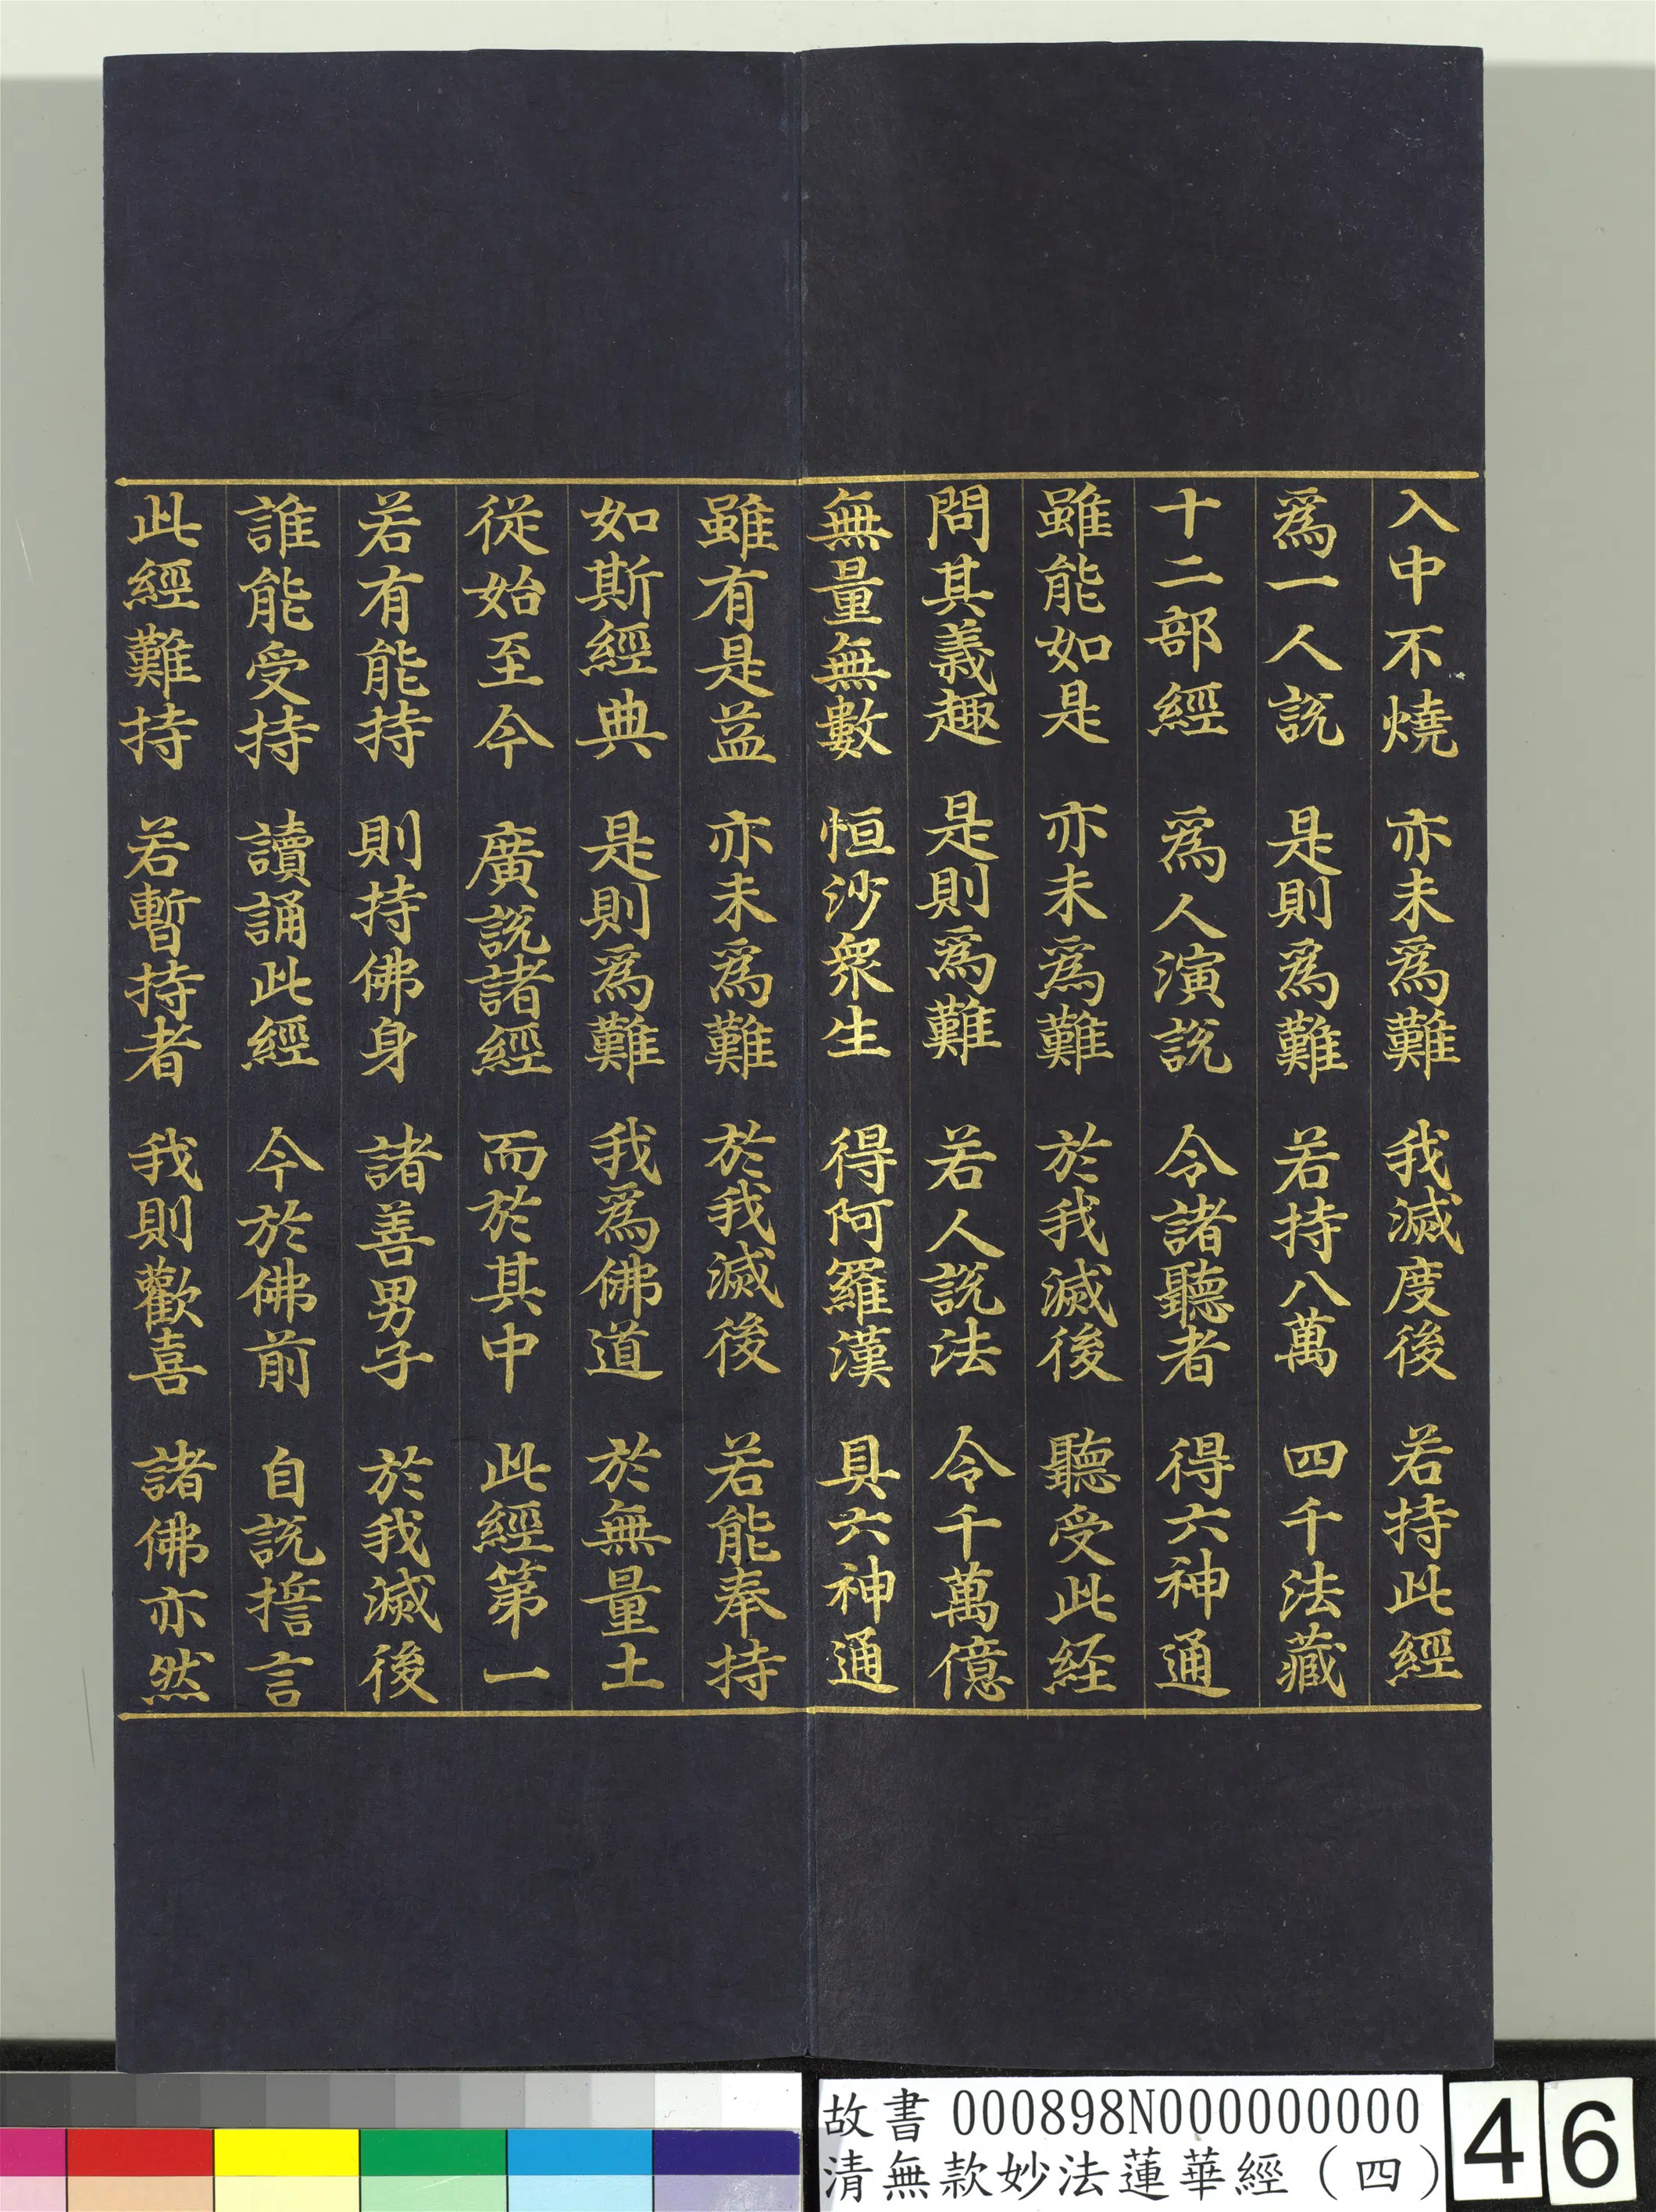 入中不燒　亦未為難　我滅度後　若持此經
為一人說　是則為難　若持八萬　四千法藏
十二部經　為人演說　令諸聽者　得六神通
雖能如是　亦未為難　於我滅後　聽受此経
問其義趣　是則為難　若人說法　令千萬億
無量無數　恒沙衆生　得阿羅漢　具六神通
雖有是益　亦未為難　於我滅後　若能奉持
如斯經典　是則為難　我為佛道　於無量土
從始至今　廣說諸經　而於其中　此經第一
若有能持　則持佛身　諸善男子　於我滅後
誰能受持　讀誦此經　今於佛前　自說誓言
此經難持　若暫持者　我則歡喜　諸佛亦然
故書 000898N000000000
清無款妙法蓮華經（四）
46